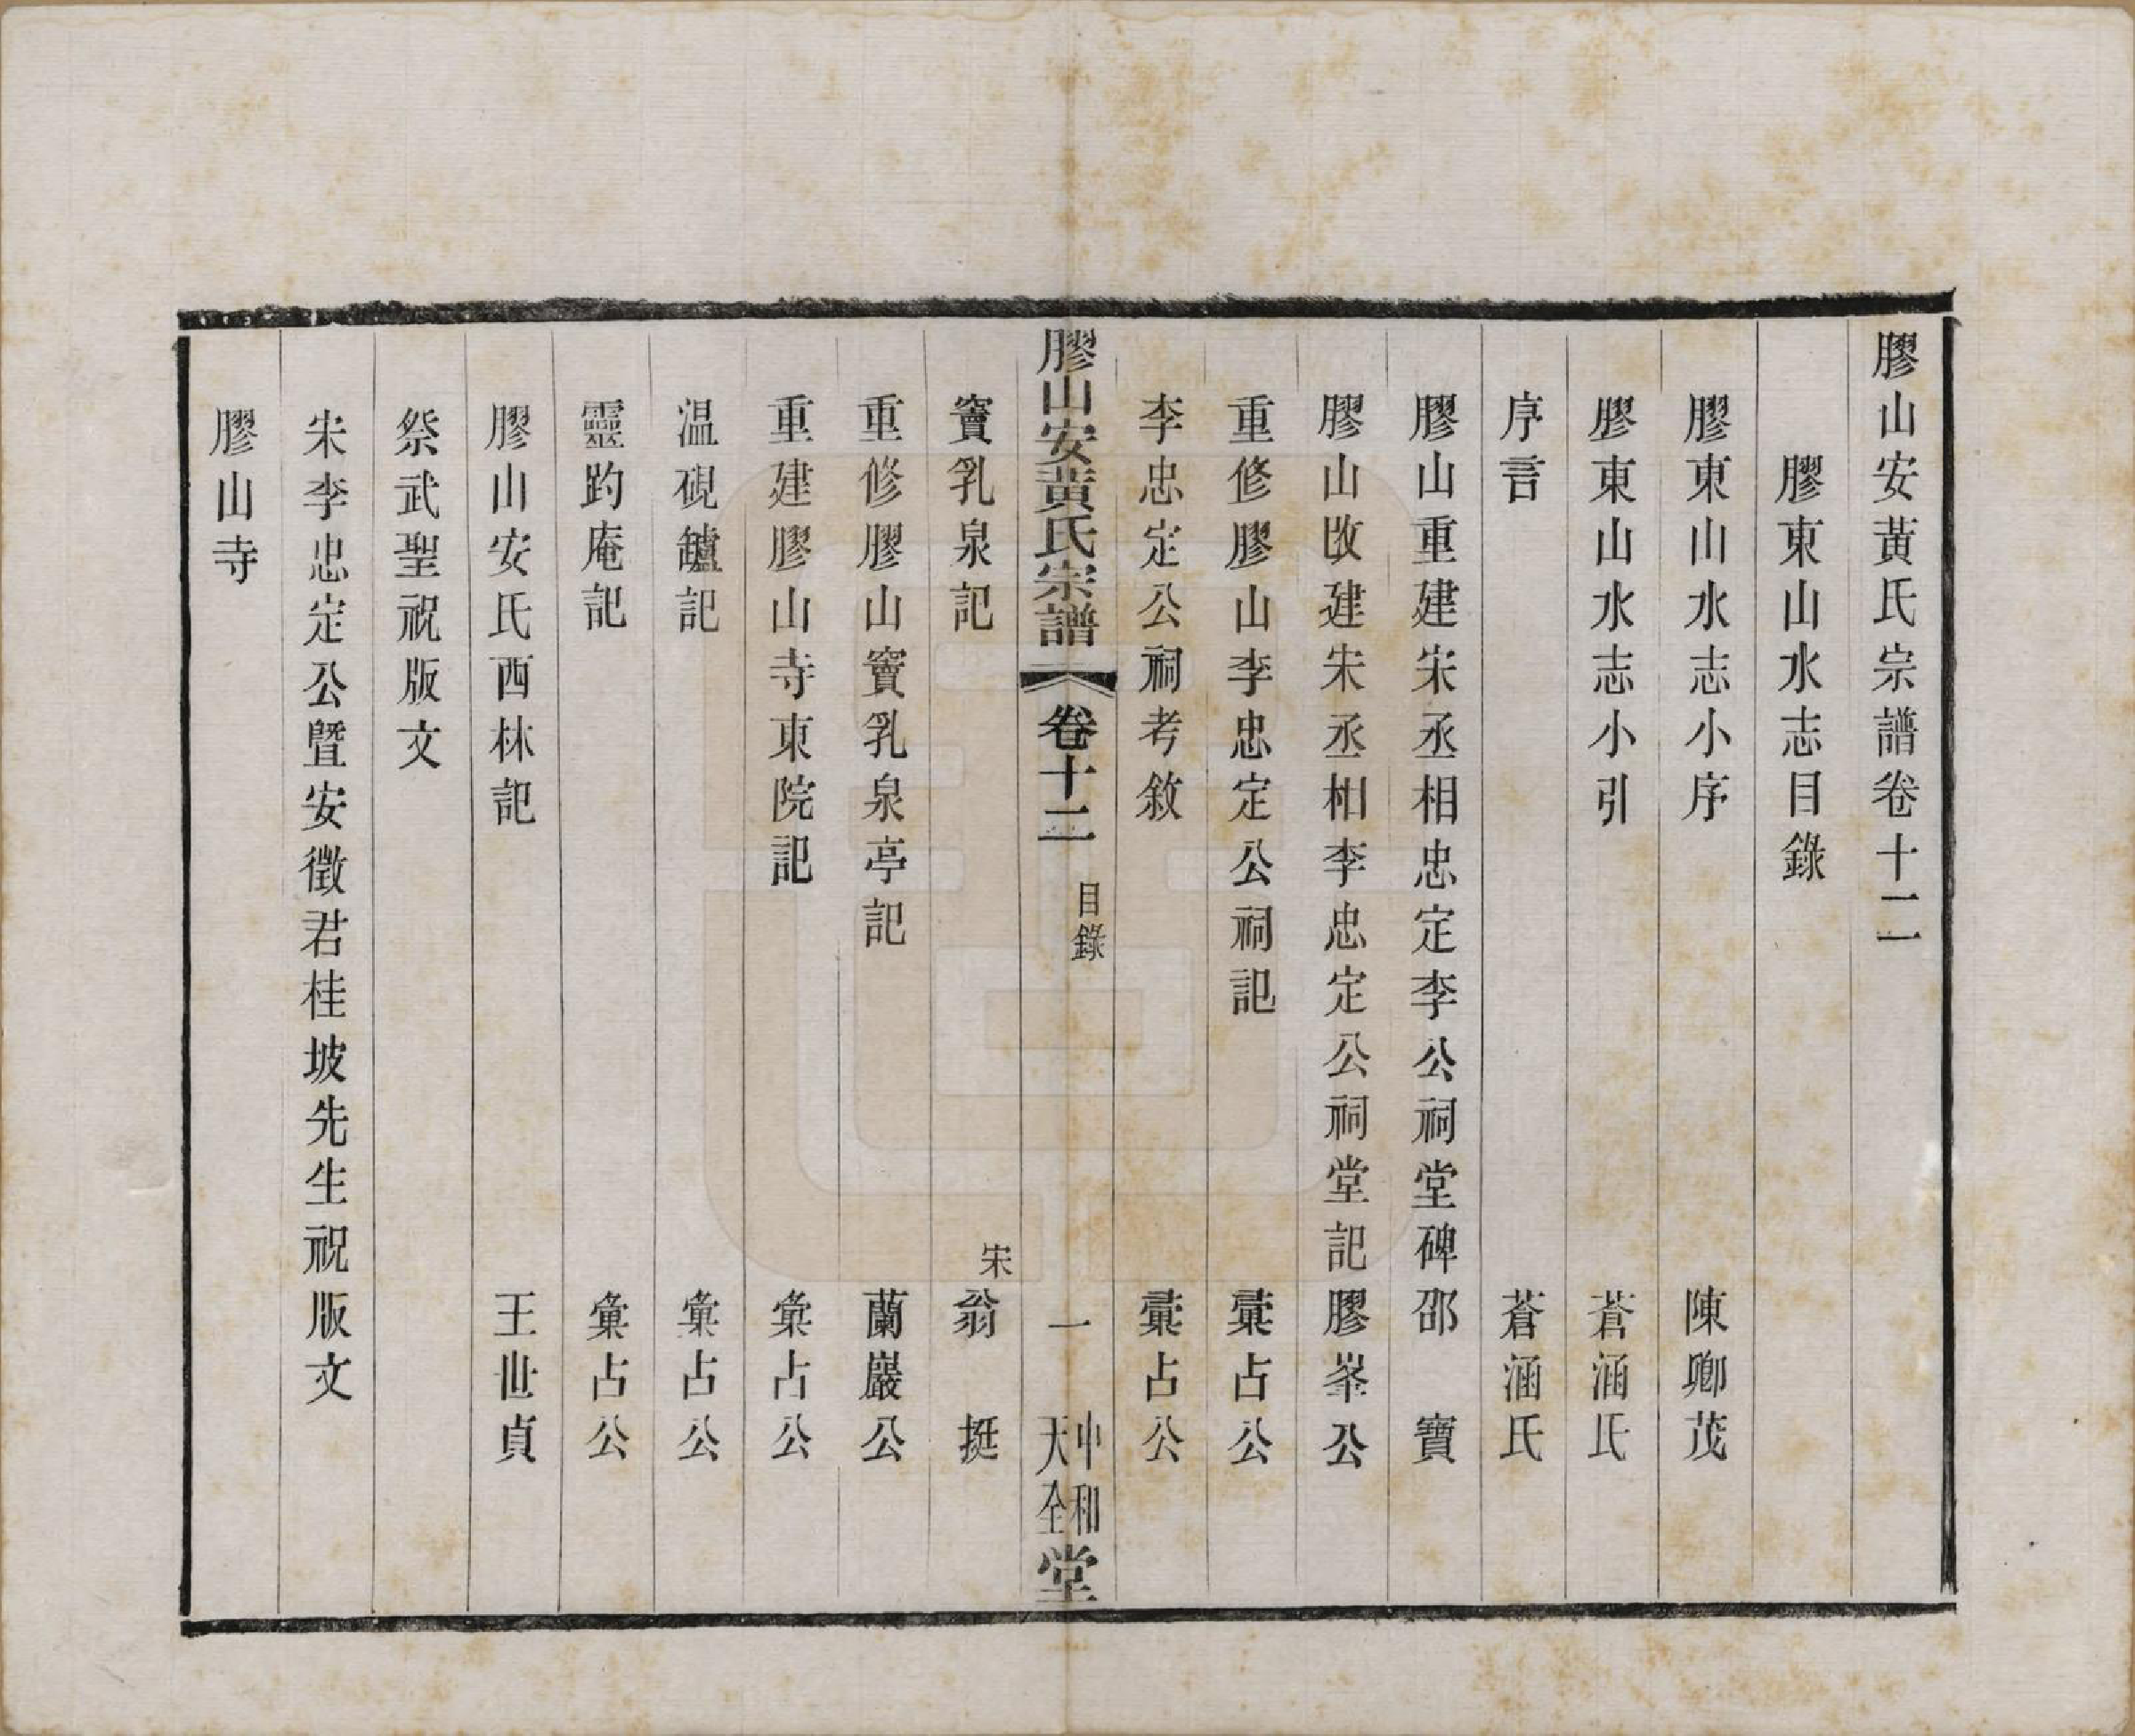 膠山安黃氏宗譜卷十二
膠東山水志目錄
膠東山水志小序 陳卿茂
膠東山水志小引 蒼涵氏
序言 蒼涵氏
膠山重建宋丞相忠定李公祠堂碑 邵寶
膠山改建宋丞相李忠定公祠堂記 膠峯公
重修膠山李忠定公祠記 彙占公
李忠定公祠考敘 彙占公
膠山安黃氏宗譜 卷十二 目錄 一 中和大全堂
竇乳泉記 宋翁挺
重修膠山竇乳泉亭記 蘭巖公
重建膠山寺東院記 彙占公
温硯鑪記 彙占公
靈趵庵記 彙占公
膠山安氏西林記 王世貞
祭武聖祝版文
宋李忠定公暨安徵君桂坡先生祝版文
膠山寺